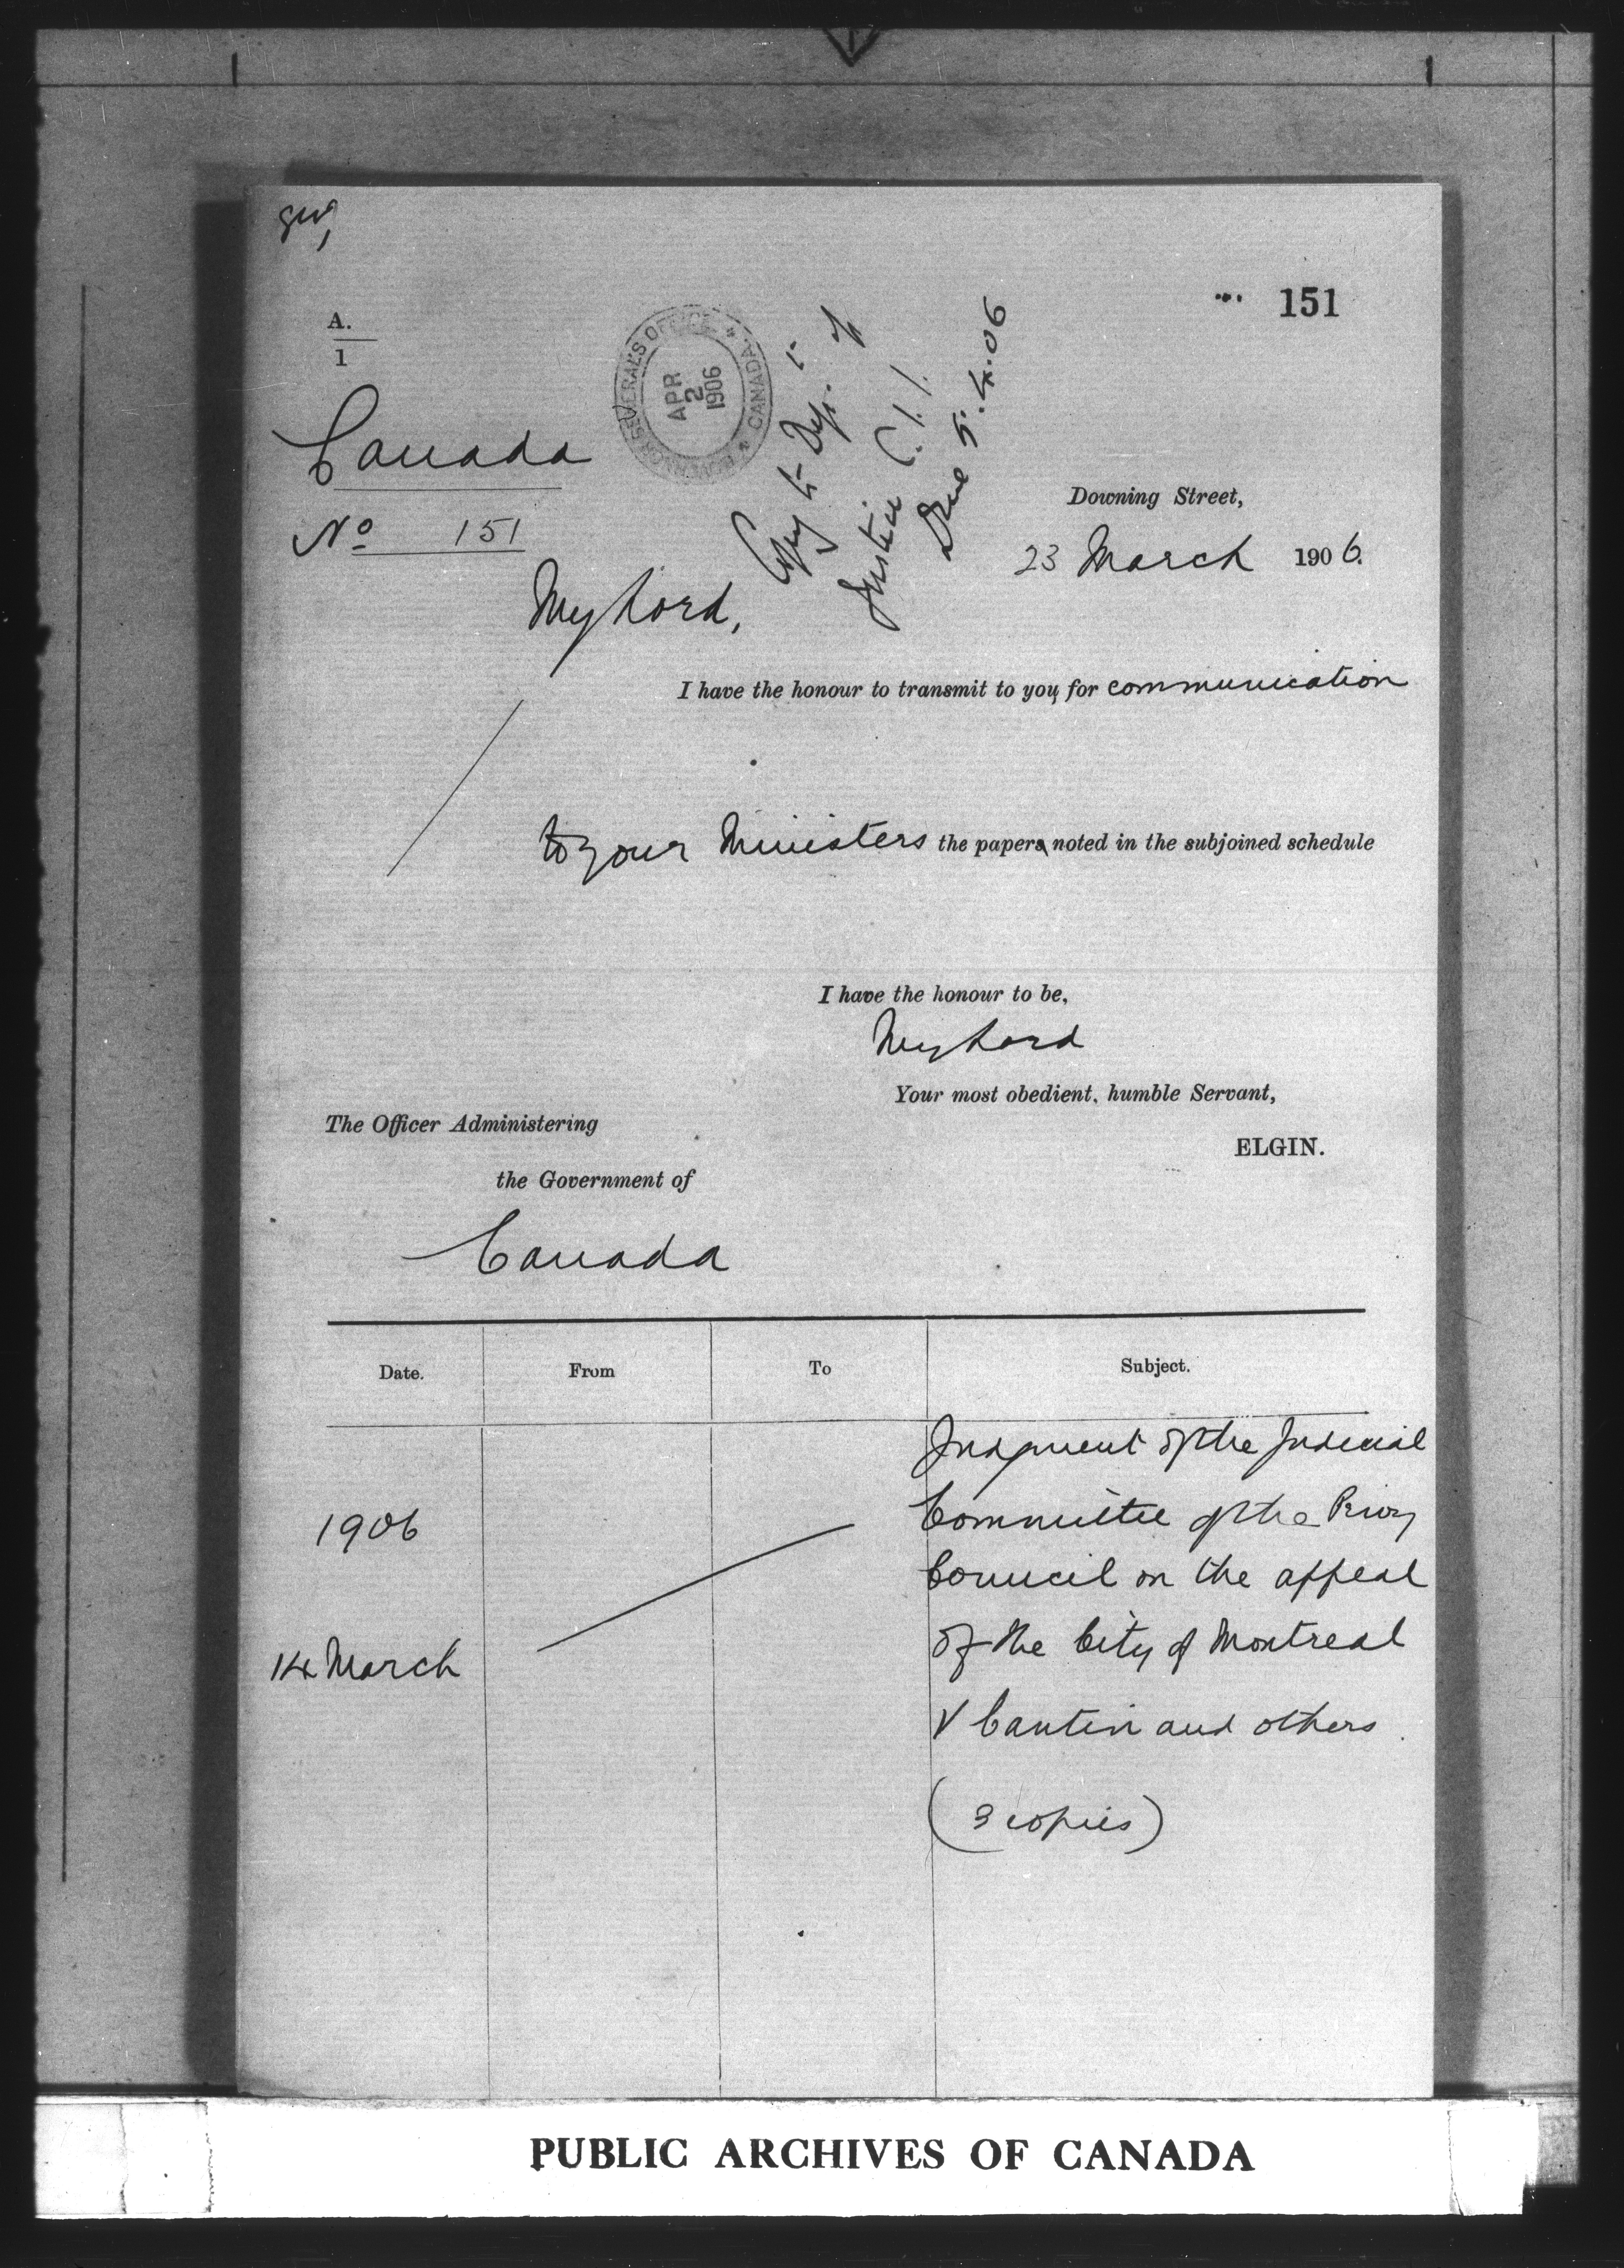 151
A.
1
GOVERNOR GENERAL'S OFFICE
CANADA
APR
2
1906
Copy to Dep. of
Justice
5.4.06
Canada
No 151
Downing Street,
23 March 1906.
My Lord,
I have the honour to transmit to you, for communication
to your Ministers the papers noted in the subjoined schedule
I have the honour to be,
My Lord
Your most obedient, humble Servant,
ELGIN.
The Officer Administering
the Government of
Canada
Date. From To Subject.
1906
14 March
Judgment of the Judicial
Committee of the Privy
Council on the appeal
of the City of Montreal
v Cantin and others.
(3 copies)
PUBLIC ARCHIVES OF CANADA